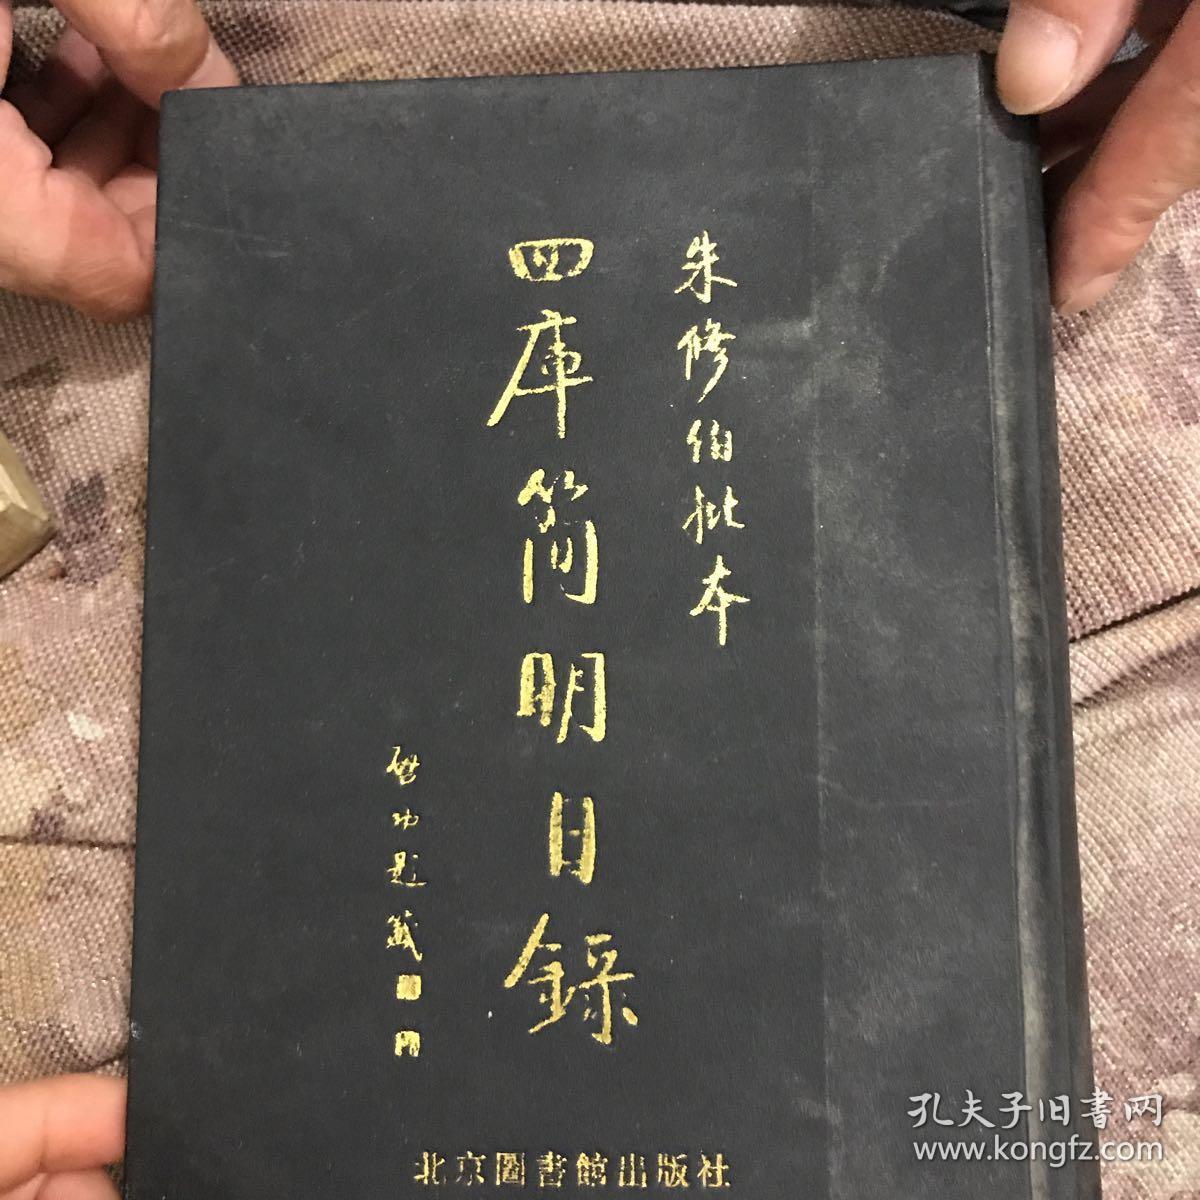 朱修伯批本
四庫简明目錄
啓功题籤
北京圖書館出版社
孔夫子旧书网
www.kongfz.com